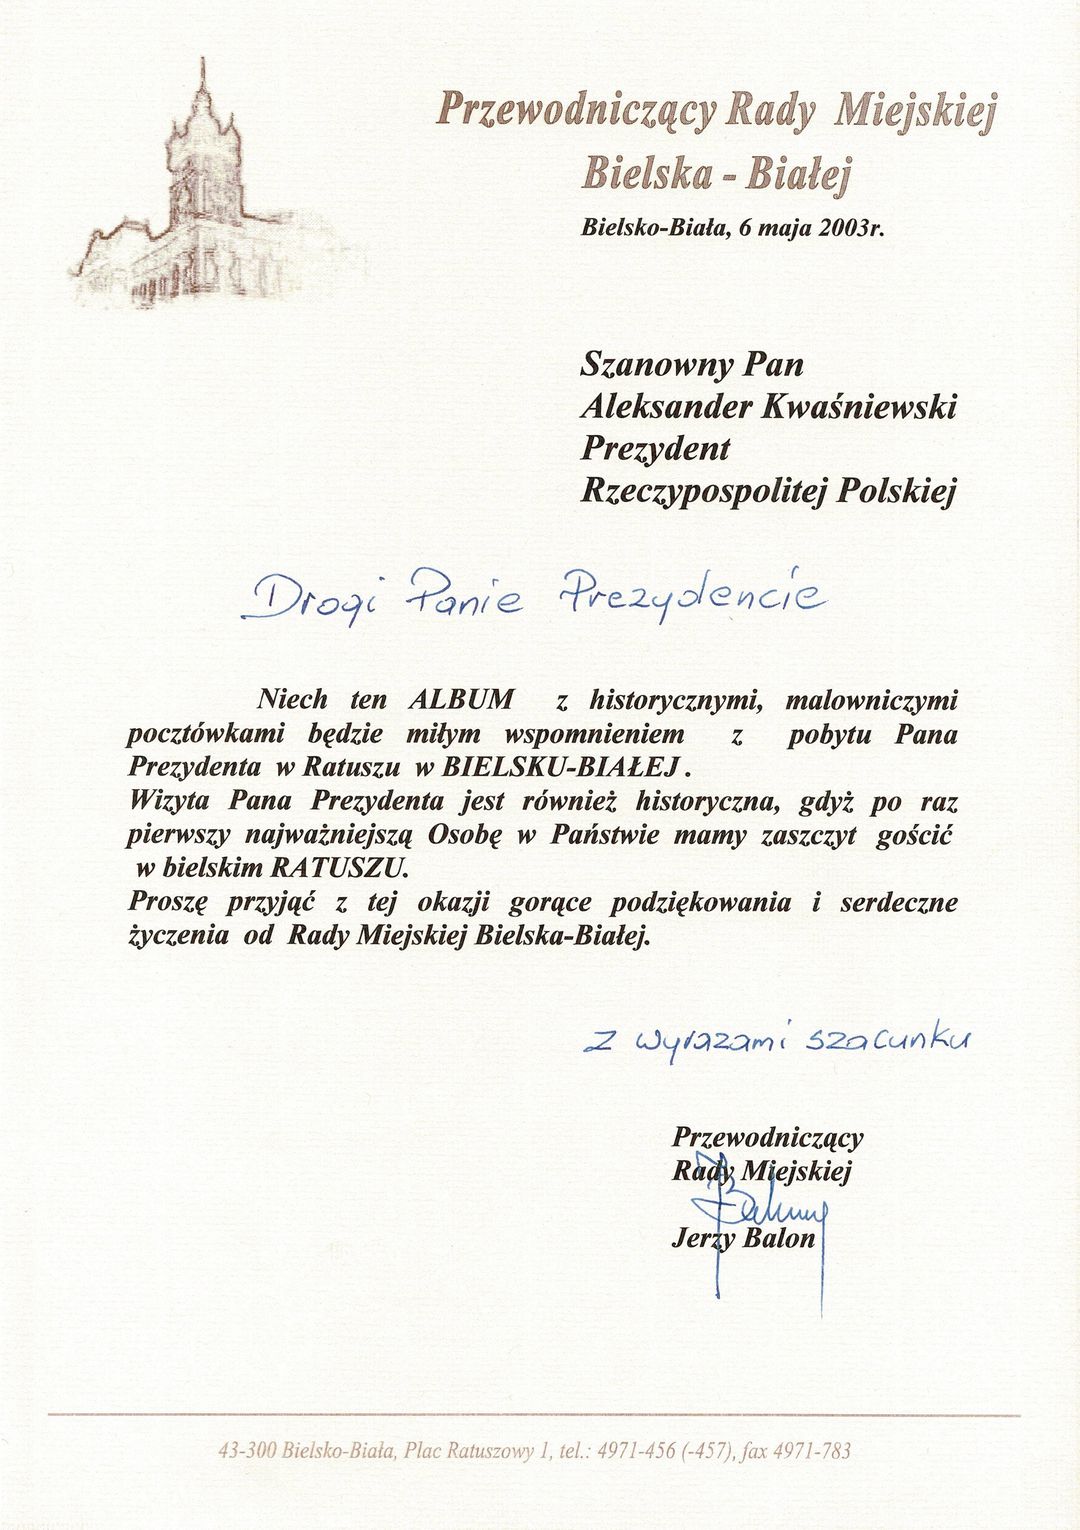 Przewodniczący Rady Miejskiej
Bielska - Białej
Bielsko-Biała, 6 maja 2003r.
Szanowny Pan
Aleksander Kwaśniewski
Prezydent
Rzeczypospolitej Polskiej
Drogi Panie Prezydencie
Niech ten ALBUM z historycznymi, malowniczymi
pocztówkami będzie miłym wspomnieniem z pobytu Pana
Prezydenta w Ratuszu w BIELSKU-BIAŁEJ .
Wizyta Pana Prezydenta jest również historyczna, gdyż po raz
pierwszy najważniejszą Osobę w Państwie mamy zaszczyt gościć
w bielskim RATUSZU.
Proszę przyjąć z tej okazji gorące podziękowania i serdeczne
życzenia od Rady Miejskiej Bielska-Białej.
z wyrazami szacunku
Przewodniczący
Rady Miejskiej
JBalon
Jerzy Balon
43-300 Bielsko-Biała, Plac Ratuszowy 1, tel.: 4971-456 (-457), fax 4971-783